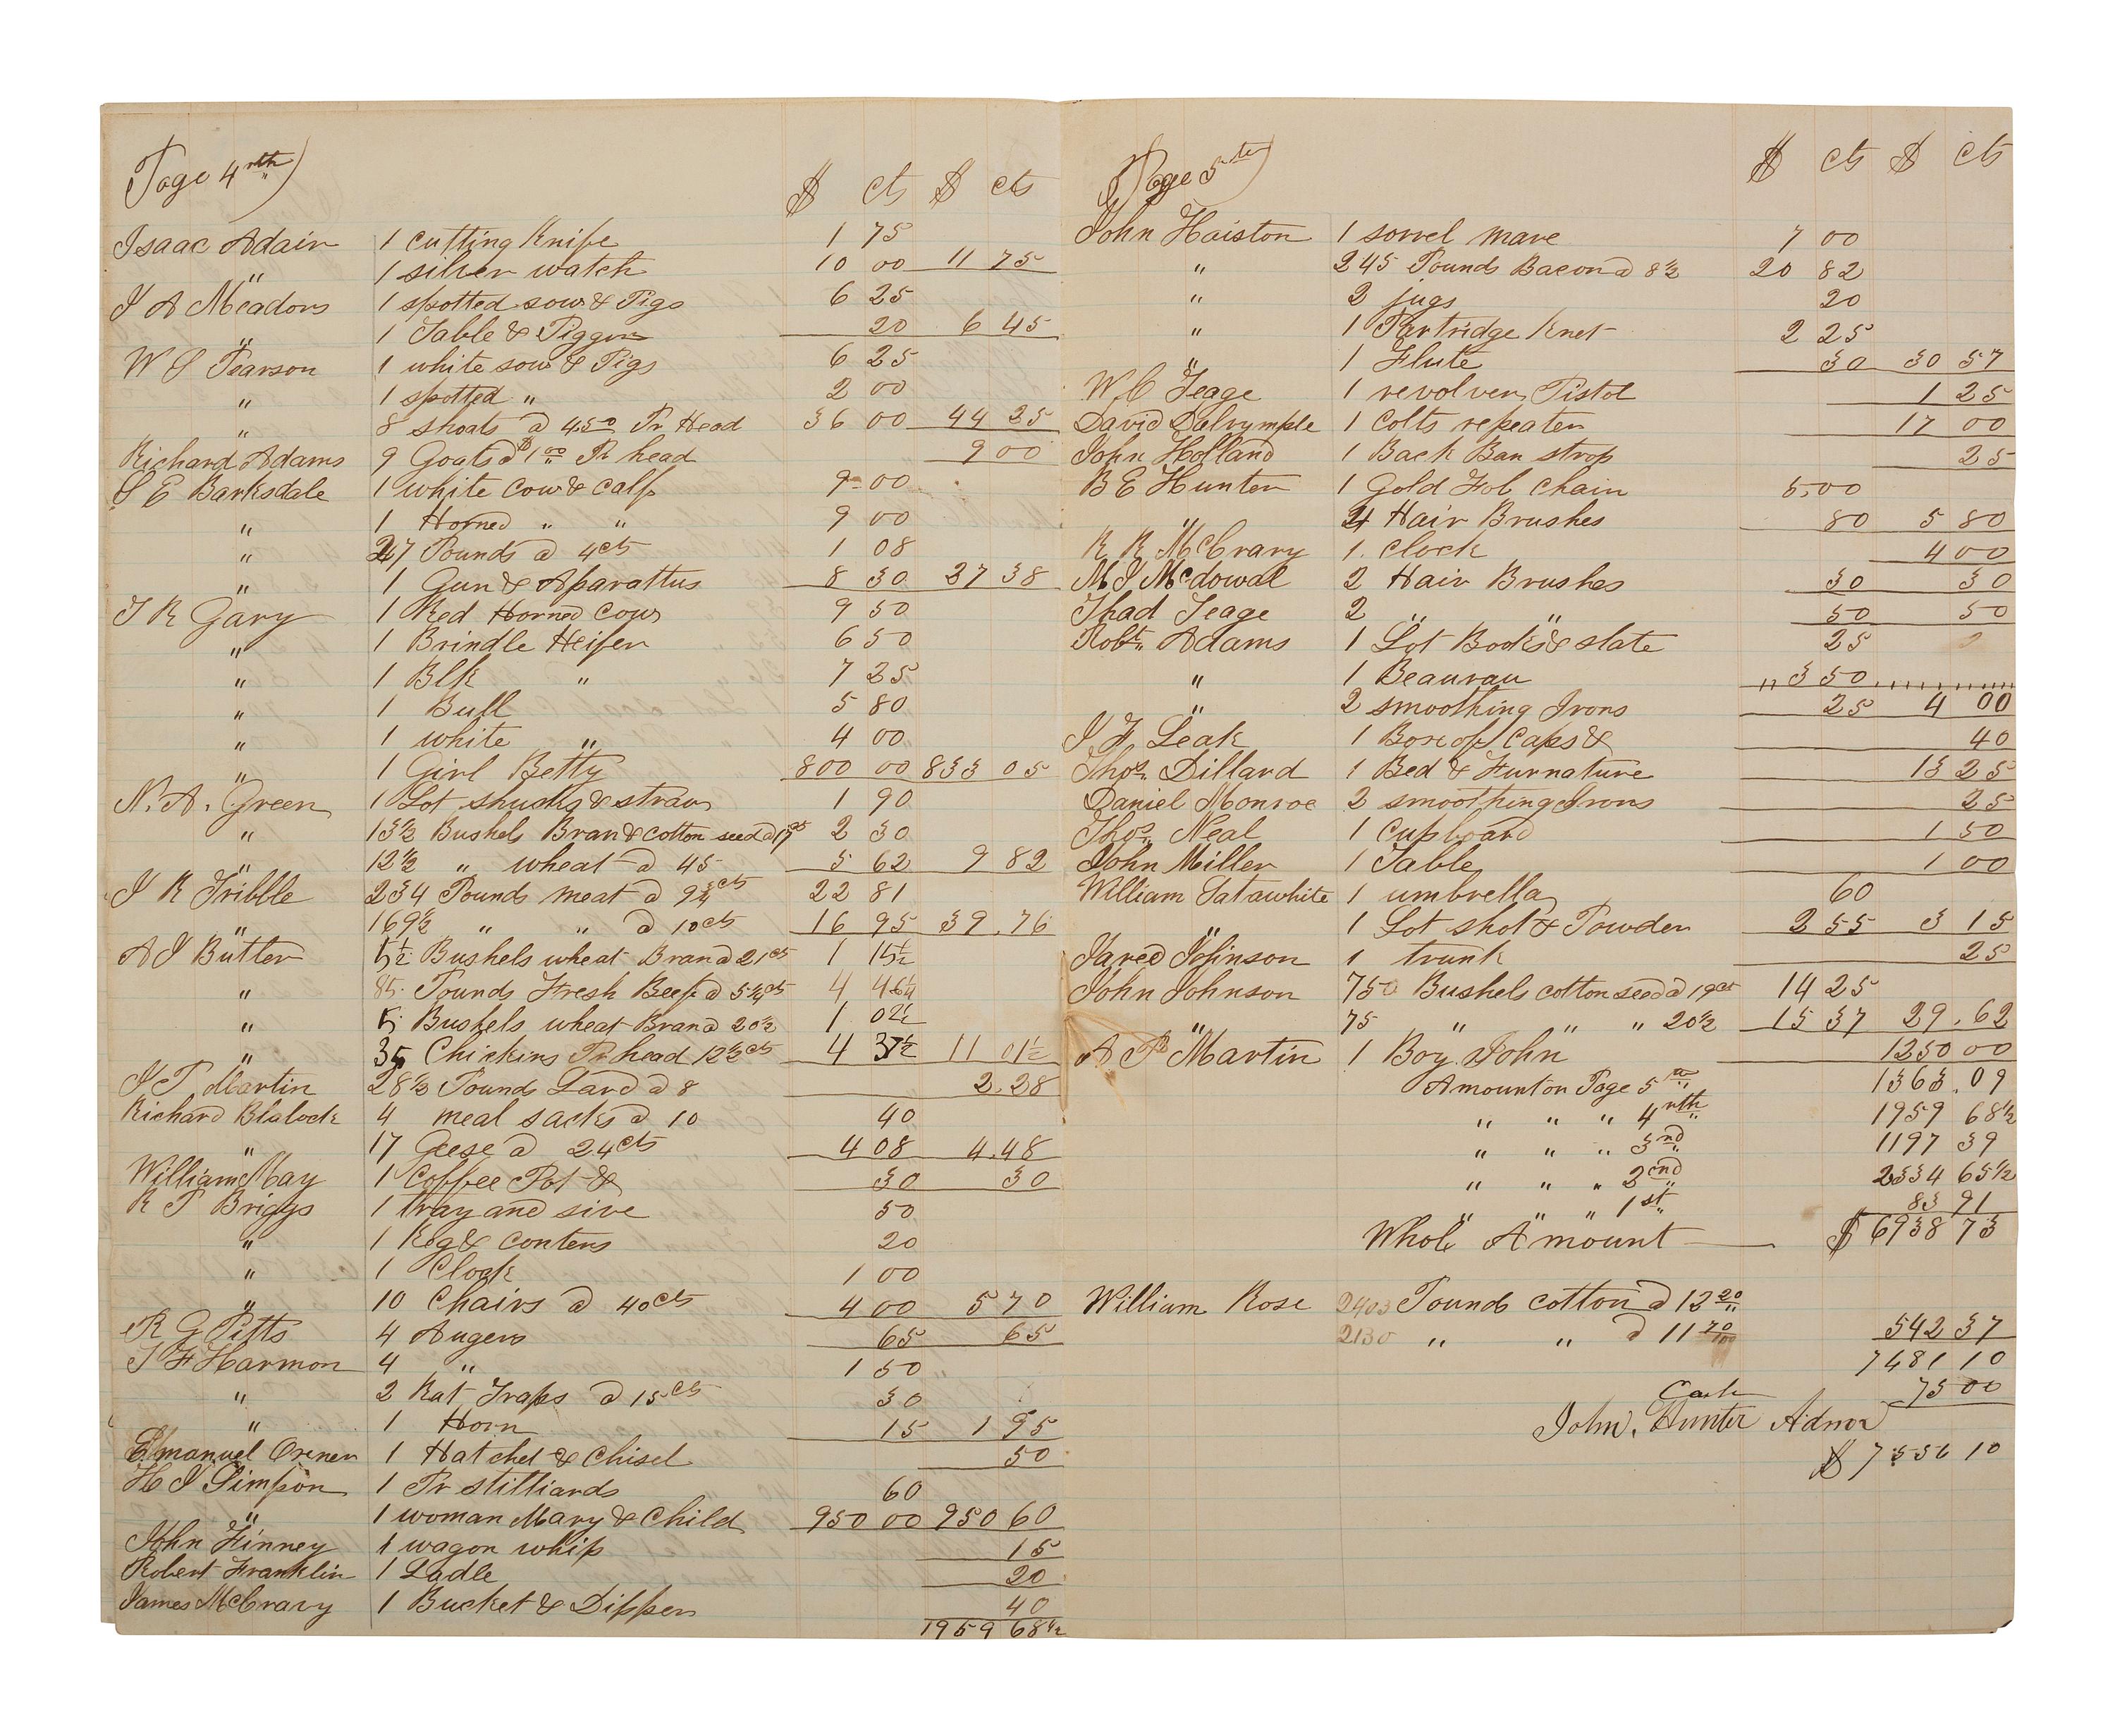 Page 4rth)
$ cts $ cts
Isaac Adair 1 cutting Knife 1 75
" 1 silver watch 10 00 11 75
J A Meadors 1 spotted sow & Pigs 6 25
" 1 Table & Piggin 20 6 45
W S Pearson 1 white sow & Pigs 6 25
" 1 spotted " 2 00
" 8 shoats @ 4.50 Pr Head 36 00 44 25
Richard Adams 9 Goats @ $1 00 Pr head 9 00
S E Barksdale 1 white Cow & Calf 9-00
" 1 Horned " " 9 00
" 27 Pounds @ 4cts 1 08
" 1 Gun & Aparattus 8 30 27 38
J R Gary 1 Red Horned Cow 9 50
" 1 Brindle Heifer 6 50
" 1 Blk " 7 25
" 1 Bull 5 80
" 1 white " 4 00
" 1 Girl Betty 800 00 833 05
N. A. Green 1 Lot shucks & straw 1 90
" 13½ Bushels Bran & cotton seed @ 17cts 2 30
" 12½ " wheat @ 45 5 62 9 82
J R Tribble 234 Pounds meat @ 9¾cts 22 81
" 169½ " " @ 10cts 16 95 39.76
A J Butler 5½ Bushels wheat Bran @ 21cts 1 15½
" 85 Pounds Fresh Beef @ 5¼cts 4 46¼
" 5 Bushels wheat Bran @ 20½ 1 02½
" 35 Chickins Pr head 12½cts 4 37½ 11 01½
J P Martin 28½ Pounds Lard @ 8 2.28
Richard Blalock 4 meal sacks @ 10 40
" 17 Geese @ 24cts 4 08 4.48
William May 1 Coffee Pot & 30 30
R P Briggs 1 tray and sive 50
" 1 Keg & contens 20
" 1 Clock 1 00
" 10 Chairs @ 40cts 4 00 5 70
R G Pitts 4 Augers 65 65
J F Harmon 4 " 1 50
" 2 Rat Traps @ 15cts 30
" 1 Horn 15 1 95
Emanuel 1 Hatchet & Chisel 50
H J Simpson 1 Pr stilliards 60
" 1 woman Mary & Child 950 00 950 60
John Finney 1 wagon whip 15
Robert Franklin 1 Ladle 20
James McCravy 1 Bucket & Dipper 40
1959 68½
Page 5te)
$ cts $ cts
John Haiston 1 sorrel mare 7 00
" 245 Pounds Bacon @ 8½ 20 82
" 2 jugs 20
" 1 Partridge Knet 2 25
" 1 Flute 30 30 57
W C Teage 1 revolver, Pistol 1 25
David Dalrymple 1 Colts repeater 17 00
John Holland 1 Back Ban strop 25
B E Hunter 1 Gold Fob Chain 5,00
" 4 Hair Brushes 80 5 80
R R McCrary 1 Clock 4 00
M J Mcdowal 2 Hair Brushes 30 30
Thad Teage 2 " " 50 50
Robt Adams 1 Lot Books & slate 25
" 1 Beaurau 3 50
" 2 smoothing Irons 25 4 00
J F Leak 1 Box of Caps & 40
Thos Dillard 1 Bed & Furnature 13 25
Daniel Monroe 2 smoothing Irons 25
Thos Neal 1 Cupboard 1 50
John Miller 1 Table 1 00
William Satawhite 1 umbrella 60
" 1 Lot shot & Powder 2 55 3 15
Jared Johnson 1 trunk 25
John Johnson 75 Bushels cotton seed @ 19cts 14 25
" 75 " " " 20½ 15 37 29.62
A P Martin 1 Boy John 1250 00
Amount on Page 5te 1363.09
" " " 4rth 1959 68½
" " " 3nd 1197 39
" " " 2cnd 2334 65½
" " " 1st 83 91
Whole Amount $6938 73
William Rose 2403 Pounds cotton @ 12 20
2130 " " @ 11 70/100 542 37
7481 10
Cash 75 00
John, Hunter Admor
$ 7556 10